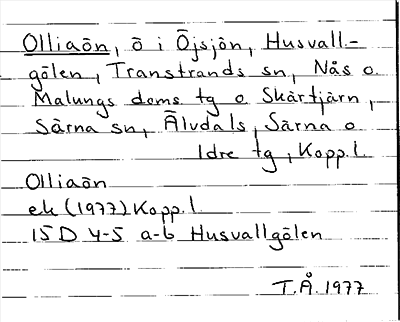 Olliaön, ö i Öjsjön, Husvall-
gölen, Transtrands sn, Nås o.
Malungs doms. tg o. Skärtjärn,
Särna sn, Älvdals, Särna o
Idre tg, Kopp.l.
Olliaön
ek (1977) Kopp.l
15 D 4-5 a-b Husvallgölen
T.Å. 1977